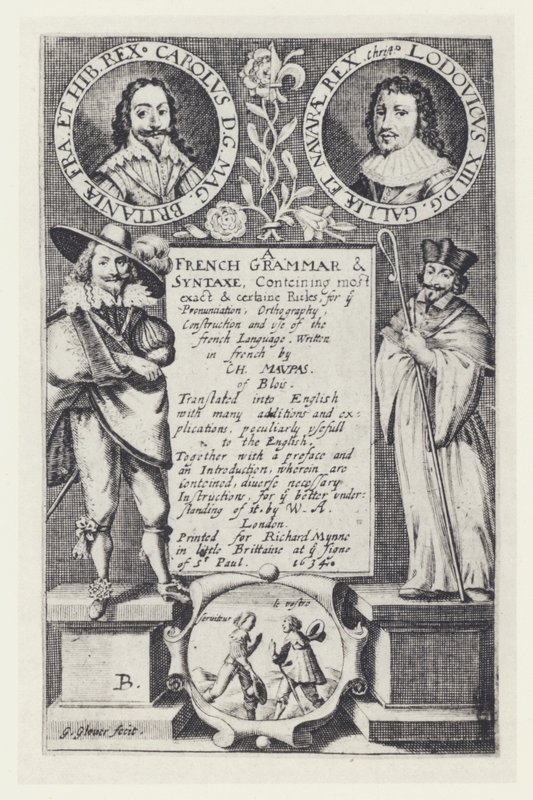 CAROLVS D.G. MAG. BRITANIÆ FRA. ET HIB. REX.
LODOVICVS XIII D.G. GALLIÆ ET NAVARÆ REX Christ.
A
FRENCH GRAMMAR &
SYNTAXE, Conteining most
exact & certaine Rules, for ÿ
Pronunciation, Orthography,
Construction and vse of the
french Language. Written
in french by
CH. MAVPAS.
of Blois.
Translated into English
with many additions and ex=
plications, peculiarly vsefull
to the English.
Together with a preface and
an Introduction, wherein are
conteined, diuerse necessary
Instructions, for ÿ better vnder=
standing of it. by W. A.
London.
Printed for Richard Mynne
in little Brittaine at ÿ signe
of St Paul. 1634.
serviteur
le vostre
B.
G. Glover fecit.